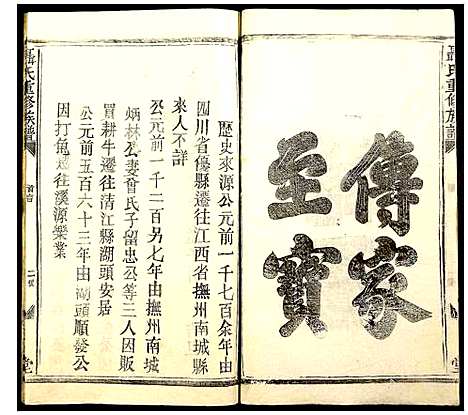 聶氏重修族譜
傳家
至寶
歷史來源公元前一千七百余年由
四川省優縣遷往江西省撫州南城縣
來人不詳
公元前一千二百另七年由撫州南城
炳林公妻曾氏子留忠公等三人因販
買耕牛遷往清江縣湖頭安居
公元前五百六十三年由湖頭順發公
因打龟遷往溪源樂業
聶氏重修族譜
二
堂
堂